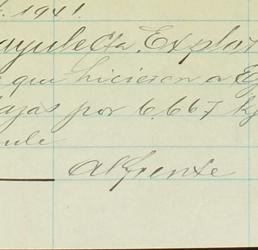 1941.
ayule Cta. Explot
que hicieron a E
azas por 6.667 kg
ule
Al frente